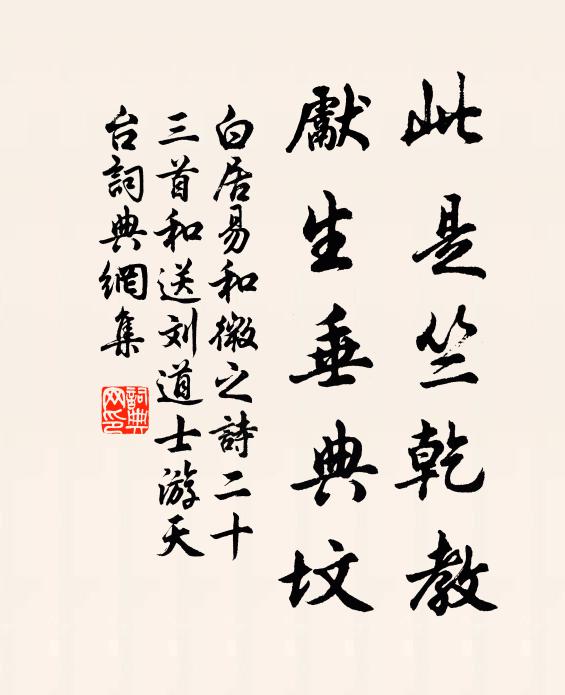 此是竺乾教
獻生垂典坟
白居易和微之詩二十
三首和送刘道士游天
台詞典網集
詞典
网印